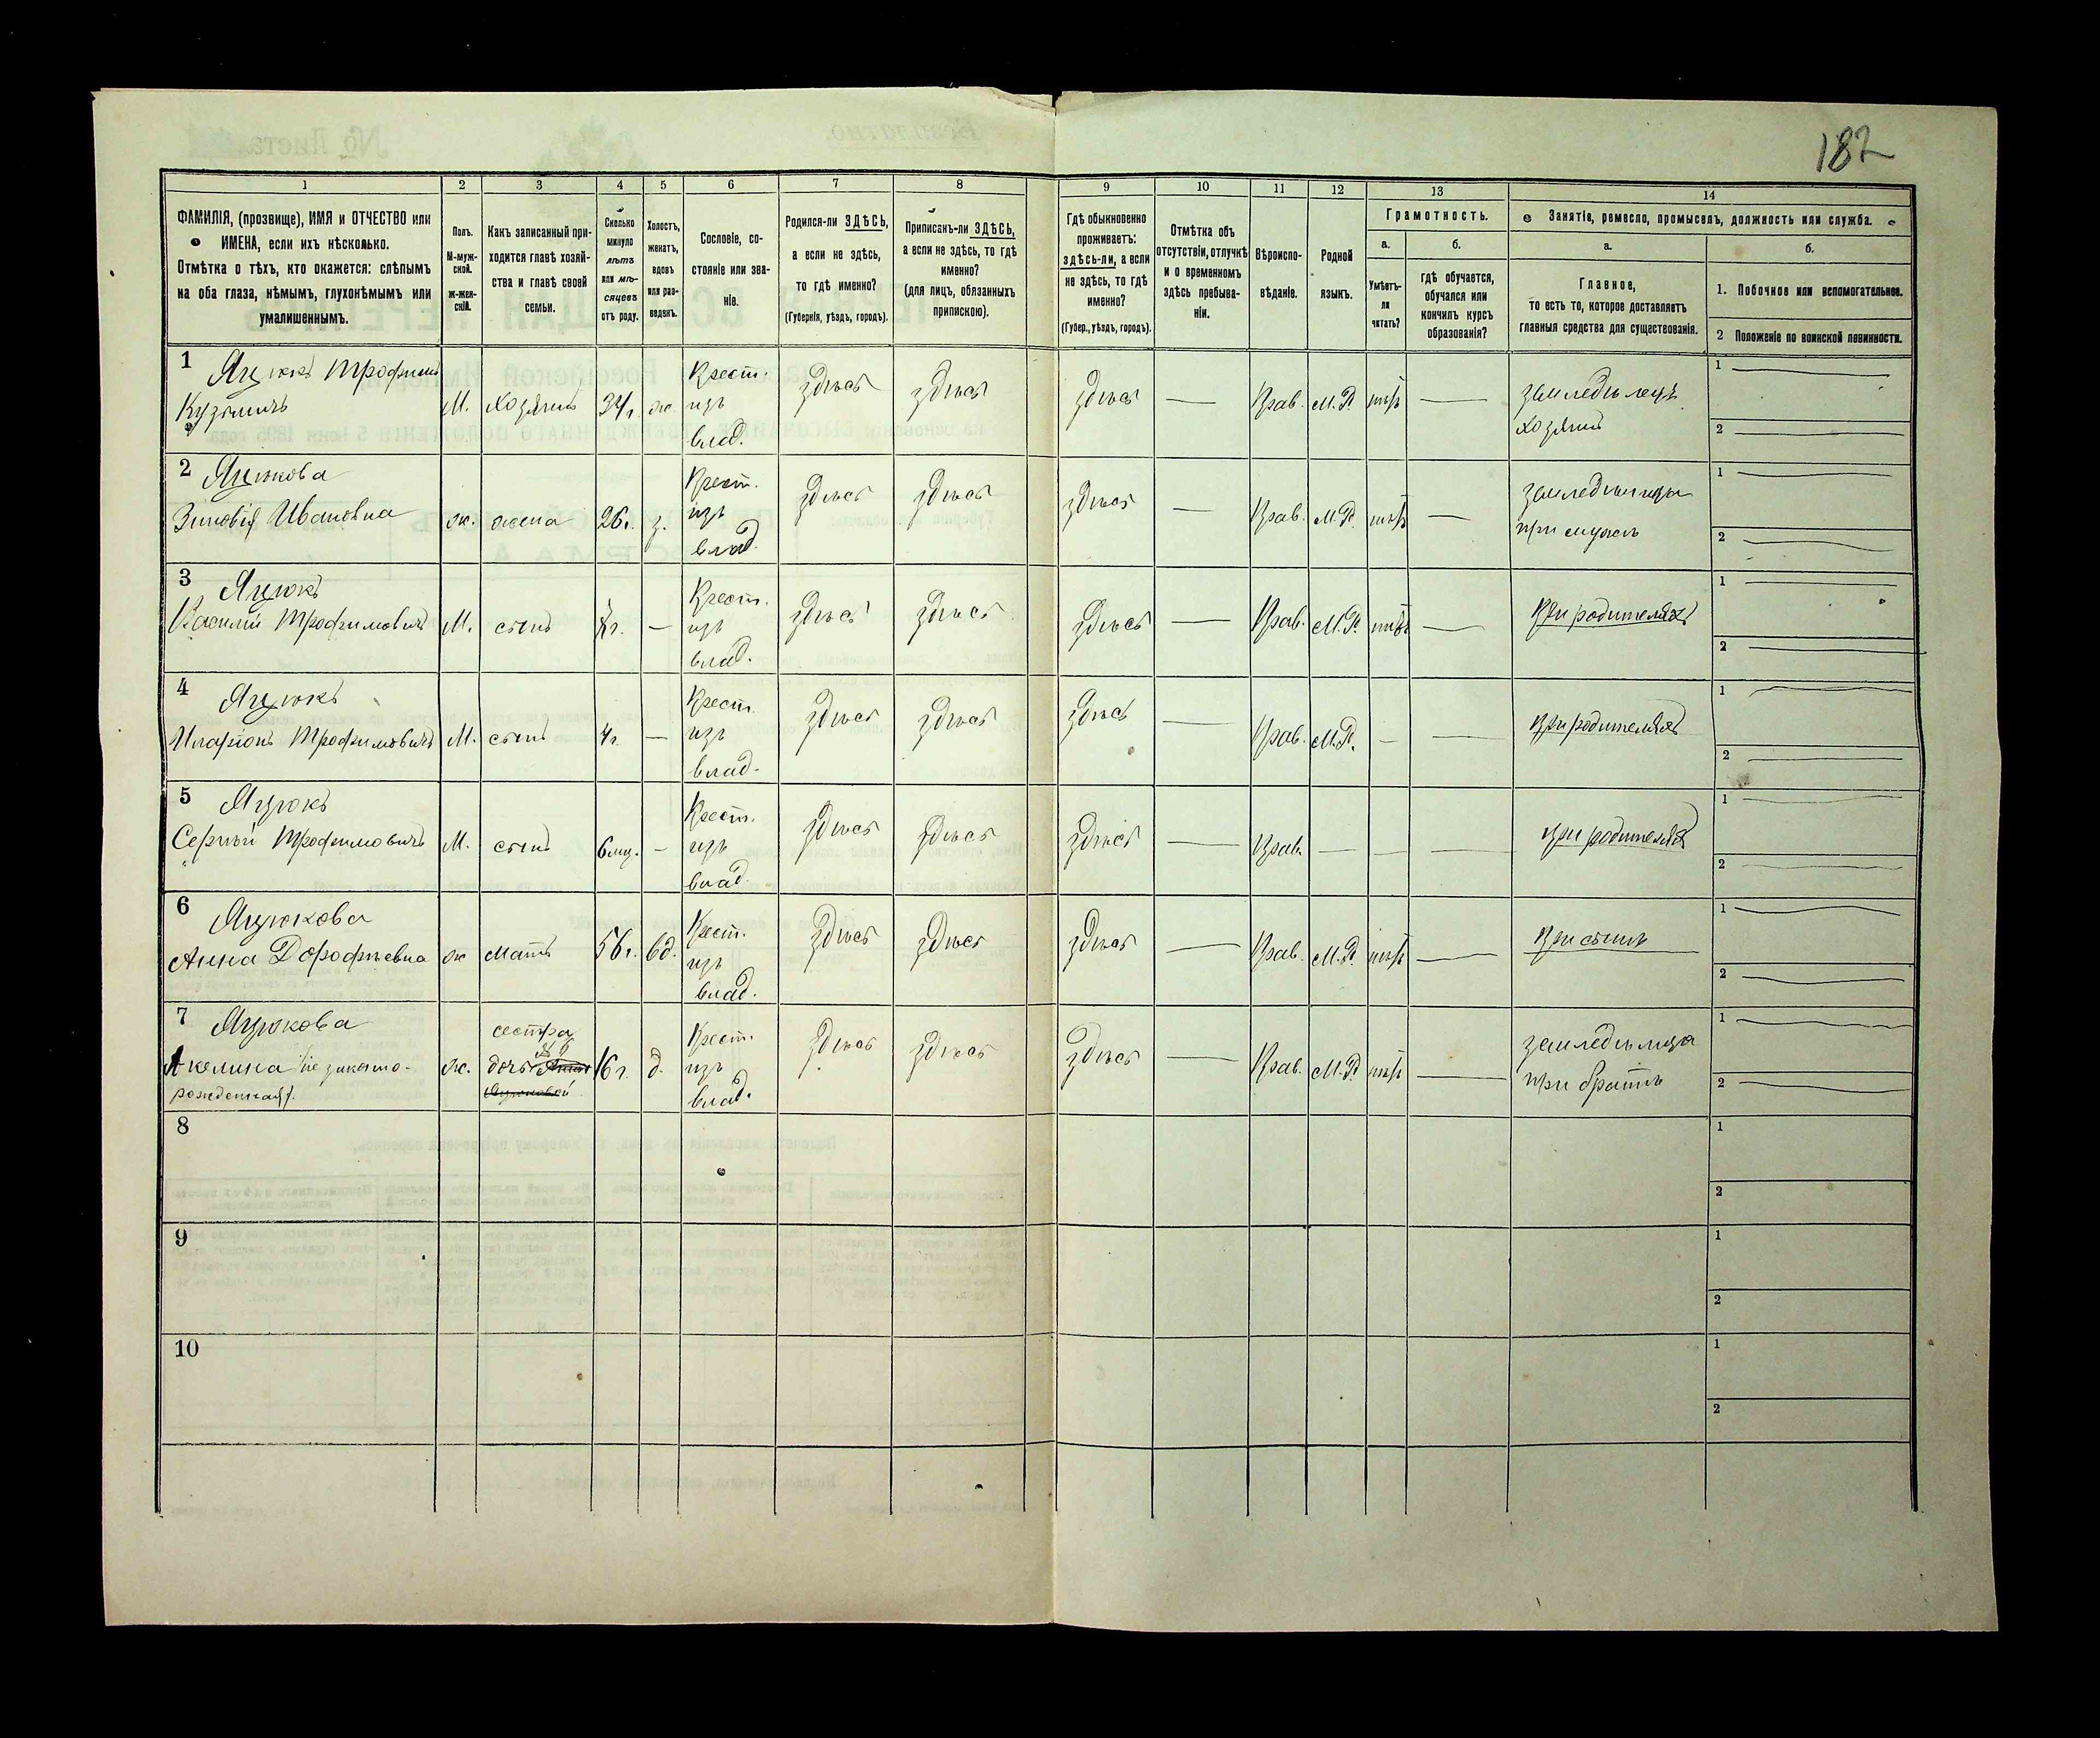 182
1 2 3 4 5 6 7 8 9 10 11 12 13 14
ФАМИЛІЯ, (прозвище), ИМЯ и ОТЧЕСТВО или
ИМЕНА, если ихъ нѣсколько.
Отмѣтка о тѣхъ, кто окажется: слѣпымъ
на оба глаза, нѣмымъ, глухонѣмымъ или
умалишеннымъ.
Полъ.
М-муж-
ской.
ж-жен-
скій.
Какъ записанный при-
ходится главѣ хозяй-
ства и главѣ своей
семьи.
Сколько
минуло
лѣтъ
или мѣ-
сяцевъ
отъ роду.
Холостъ,
женатъ,
вдовъ
или раз-
веденъ.
Сословіе, со-
стояніе или зва-
ніе.
Родился-ли ЗДѢСЬ,
а если не здѣсь,
то гдѣ именно?
(Губернія, уѣздъ, городъ).
Приписанъ-ли ЗДѢСЬ,
а если не здѣсь, то гдѣ
именно?
(для лицъ, обязанныхъ
припискою).
Гдѣ обыкновенно
проживаетъ:
здѣсь-ли, а если
не здѣсь, то гдѣ
именно?
(Губер., уѣздъ, городъ).
Отмѣтка объ
отсутствіи, отлучкѣ
и о временномъ
здѣсь пребыва-
ніи.
Вѣроиспо-
вѣданіе.
Родной
языкъ.
Грамотность.
а.
Умѣетъ-
ли
читать?
б.
гдѣ обучается,
обучался или
кончилъ курсъ
образованія?
Занятіе, ремесло, промыселъ, должность или служба.
а.
Главное,
то есть то, которое доставляетъ
главныя средства для существованія.
б.
1. Побочное или вспомогательное.
2 Положеніе по воинской повинности.
1 Яцюкъ Трофимъ
Кузьмичъ М. хозяинъ 34г. ж. Крест. изъ влад. здѣсь здѣсь здѣсь — Прав. М.Р. нѣтъ — земледѣлецъ
хозяинъ
1 —
2 —
2 Яцюкова
Зиновія Ивановна ж. жена 26г. з. Крест. изъ влад. здѣсь здѣсь здѣсь — Прав. М.Р. нѣтъ — земледѣлица
при мужѣ
1 —
2 —
3 Яцюкъ
Василій Трофимовичъ М. сынъ — Крест. изъ влад. здѣсь здѣсь здѣсь — Прав. М.Р. нѣтъ — При родителяхъ
1 —
2 —
4 Яцюкъ
Иларіонъ Трофимовичъ М. сынъ 4г. — Крест. изъ влад. здѣсь здѣсь здѣсь — Прав. М.Р. — — при родителяхъ
1 —
2 —
5 Яцюкъ
Сергѣй Трофимовичъ М. сынъ 6мц. — Крест. изъ влад. здѣсь здѣсь здѣсь — Прав. — — — при родителяхъ
1 —
2 —
6 Яцюкова
Анна Дорофѣевна ж мать 56г. вд. Крест. изъ влад. здѣсь здѣсь здѣсь — Прав. М.Р. нѣтъ — При сынѣ
1 —
2 —
7 Яцюкова
Акелина /не законно-
рожденная/. ж. сестра дочь 16г. д. Крест. изъ влад. здѣсь здѣсь здѣсь — Прав. М.Р. нѣтъ — земледѣлица
при братѣ
1 —
2 —
8
1
2
9
1
2
10
1
2